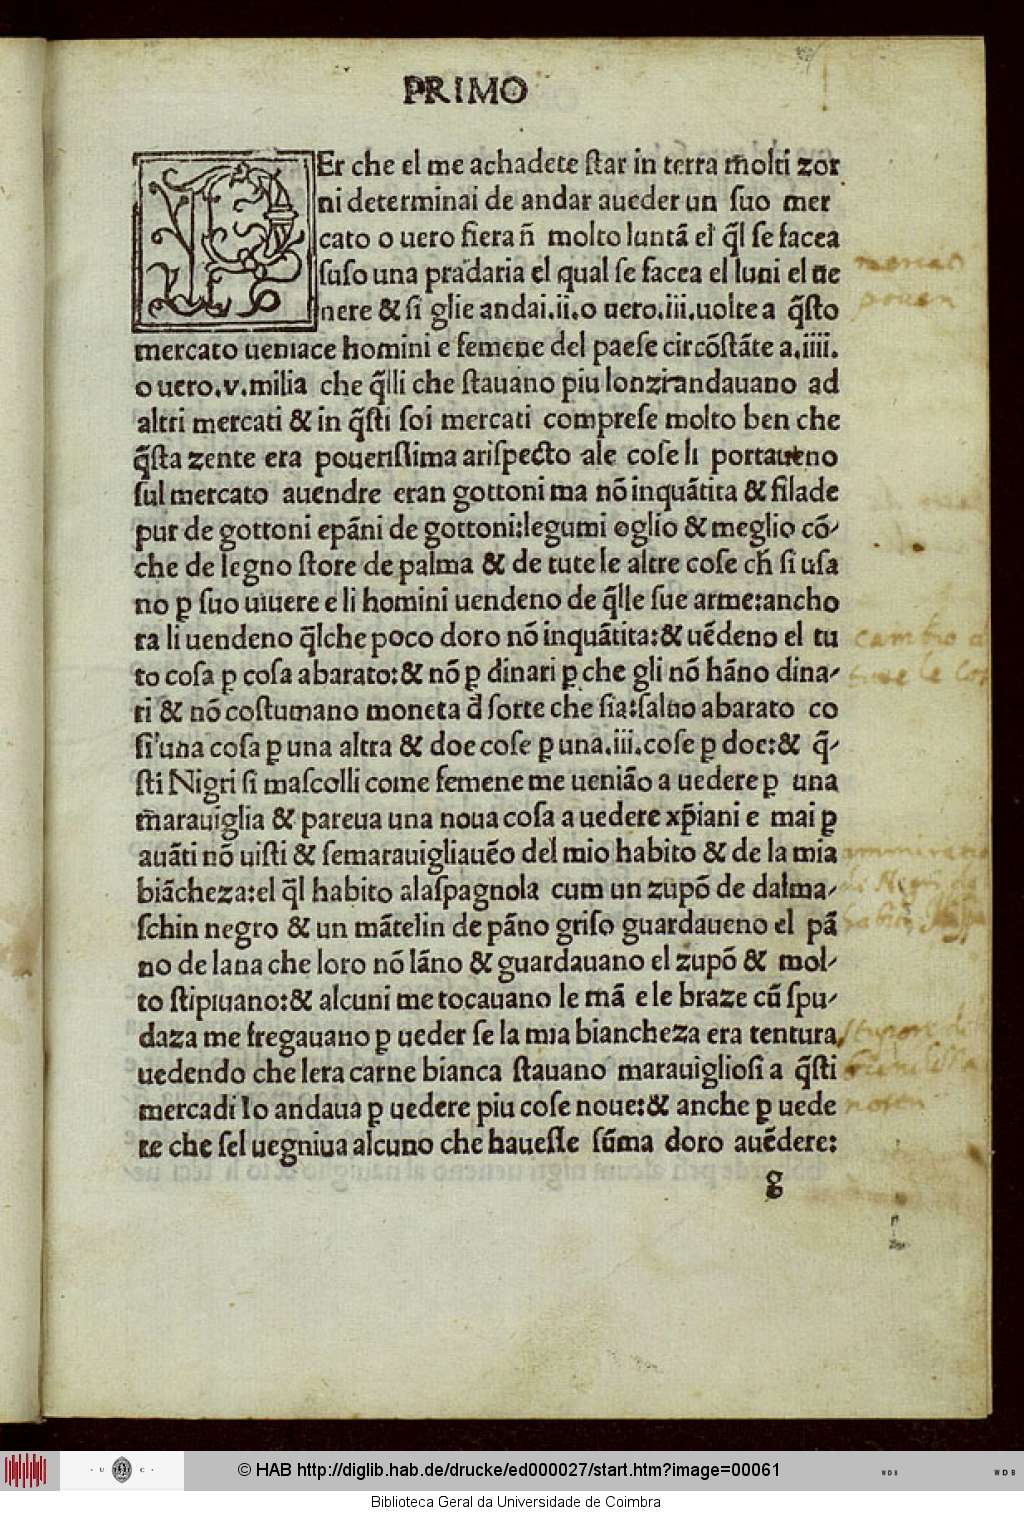 PRIMO
PEr che el me achadete star in terra m̃olti zor
ni determinai de andar aueder un suo mer
cato o uero fiera ñ molto luntã el q̃l se facea
suso una pradaria el qual se facea el luni el ue
nere & si glie andai.ii.o uero.iii.uolte a q̃sto
mercato ueniace homini e femene del paese circõstãte a.iiii.
o uero.v.milia che q̃lli che stauano piu lonzi andauano ad
altri mercati & in q̃sti soi mercati comprese molto ben che
q̃sta zente era pouerissima arispecto ale cose li portaueno
sul mercato auendre eran gottoni ma nõ inquãtita & filade
pur de gottoni epãni de gottoni:legumi oglio & meglio cõ-
che de legno store de palma & de tute le altre cose ch̃ si usa
no ꝑ suo uiuere e li homini uendeno de q̃lle sue arme:ancho
ra li uendeno q̃lche poco doro nõ inquãtita:& uẽdeno el tu
to cosa ꝑ cosa abarato:& nõ ꝑ dinari ꝑ che gli nõ hãno dina-
ri & nõ costumano moneta d̃ sorte che sia:saluo abarato co
si una cosa ꝑ una altra & doe cose ꝑ una.iii.cose ꝑ doe:& q̃-
sti Nigri si mascolli come femene me uenião a uedere ꝑ una
m̃arauiglia & pareua una noua cosa a uedere xp̃iani e mai ꝑ
auãti nõ uisti & semarauigliauẽo del mio habito & de la mia
biãcheza:el q̃l habito alaspagnola cum un zupõ de dalma-
schin negro & un mãtelin de pãno griso guardaueno el pã
no de lana che loro nõ lãno & guardauano el zupõ & mol-
to stipiuano:& alcuni me tocauano le mã e le braze cũ spu-
daza me fregauano ꝑ ueder se la mia biancheza era tentura
uedendo che lera carne bianca stauano marauigliosi a q̃sti
mercadi Io andaua ꝑ uedere piu cose noue:& anche ꝑ uede
re che sel uegniua alcuno che hauesse sũma doro auẽdere:
g
mercato
poueri
cambio d
tute le cos
© HAB http://diglib.hab.de/drucke/ed000027/start.htm?image=00061
WDB
WDB
Biblioteca Geral da Universidade de Coimbra